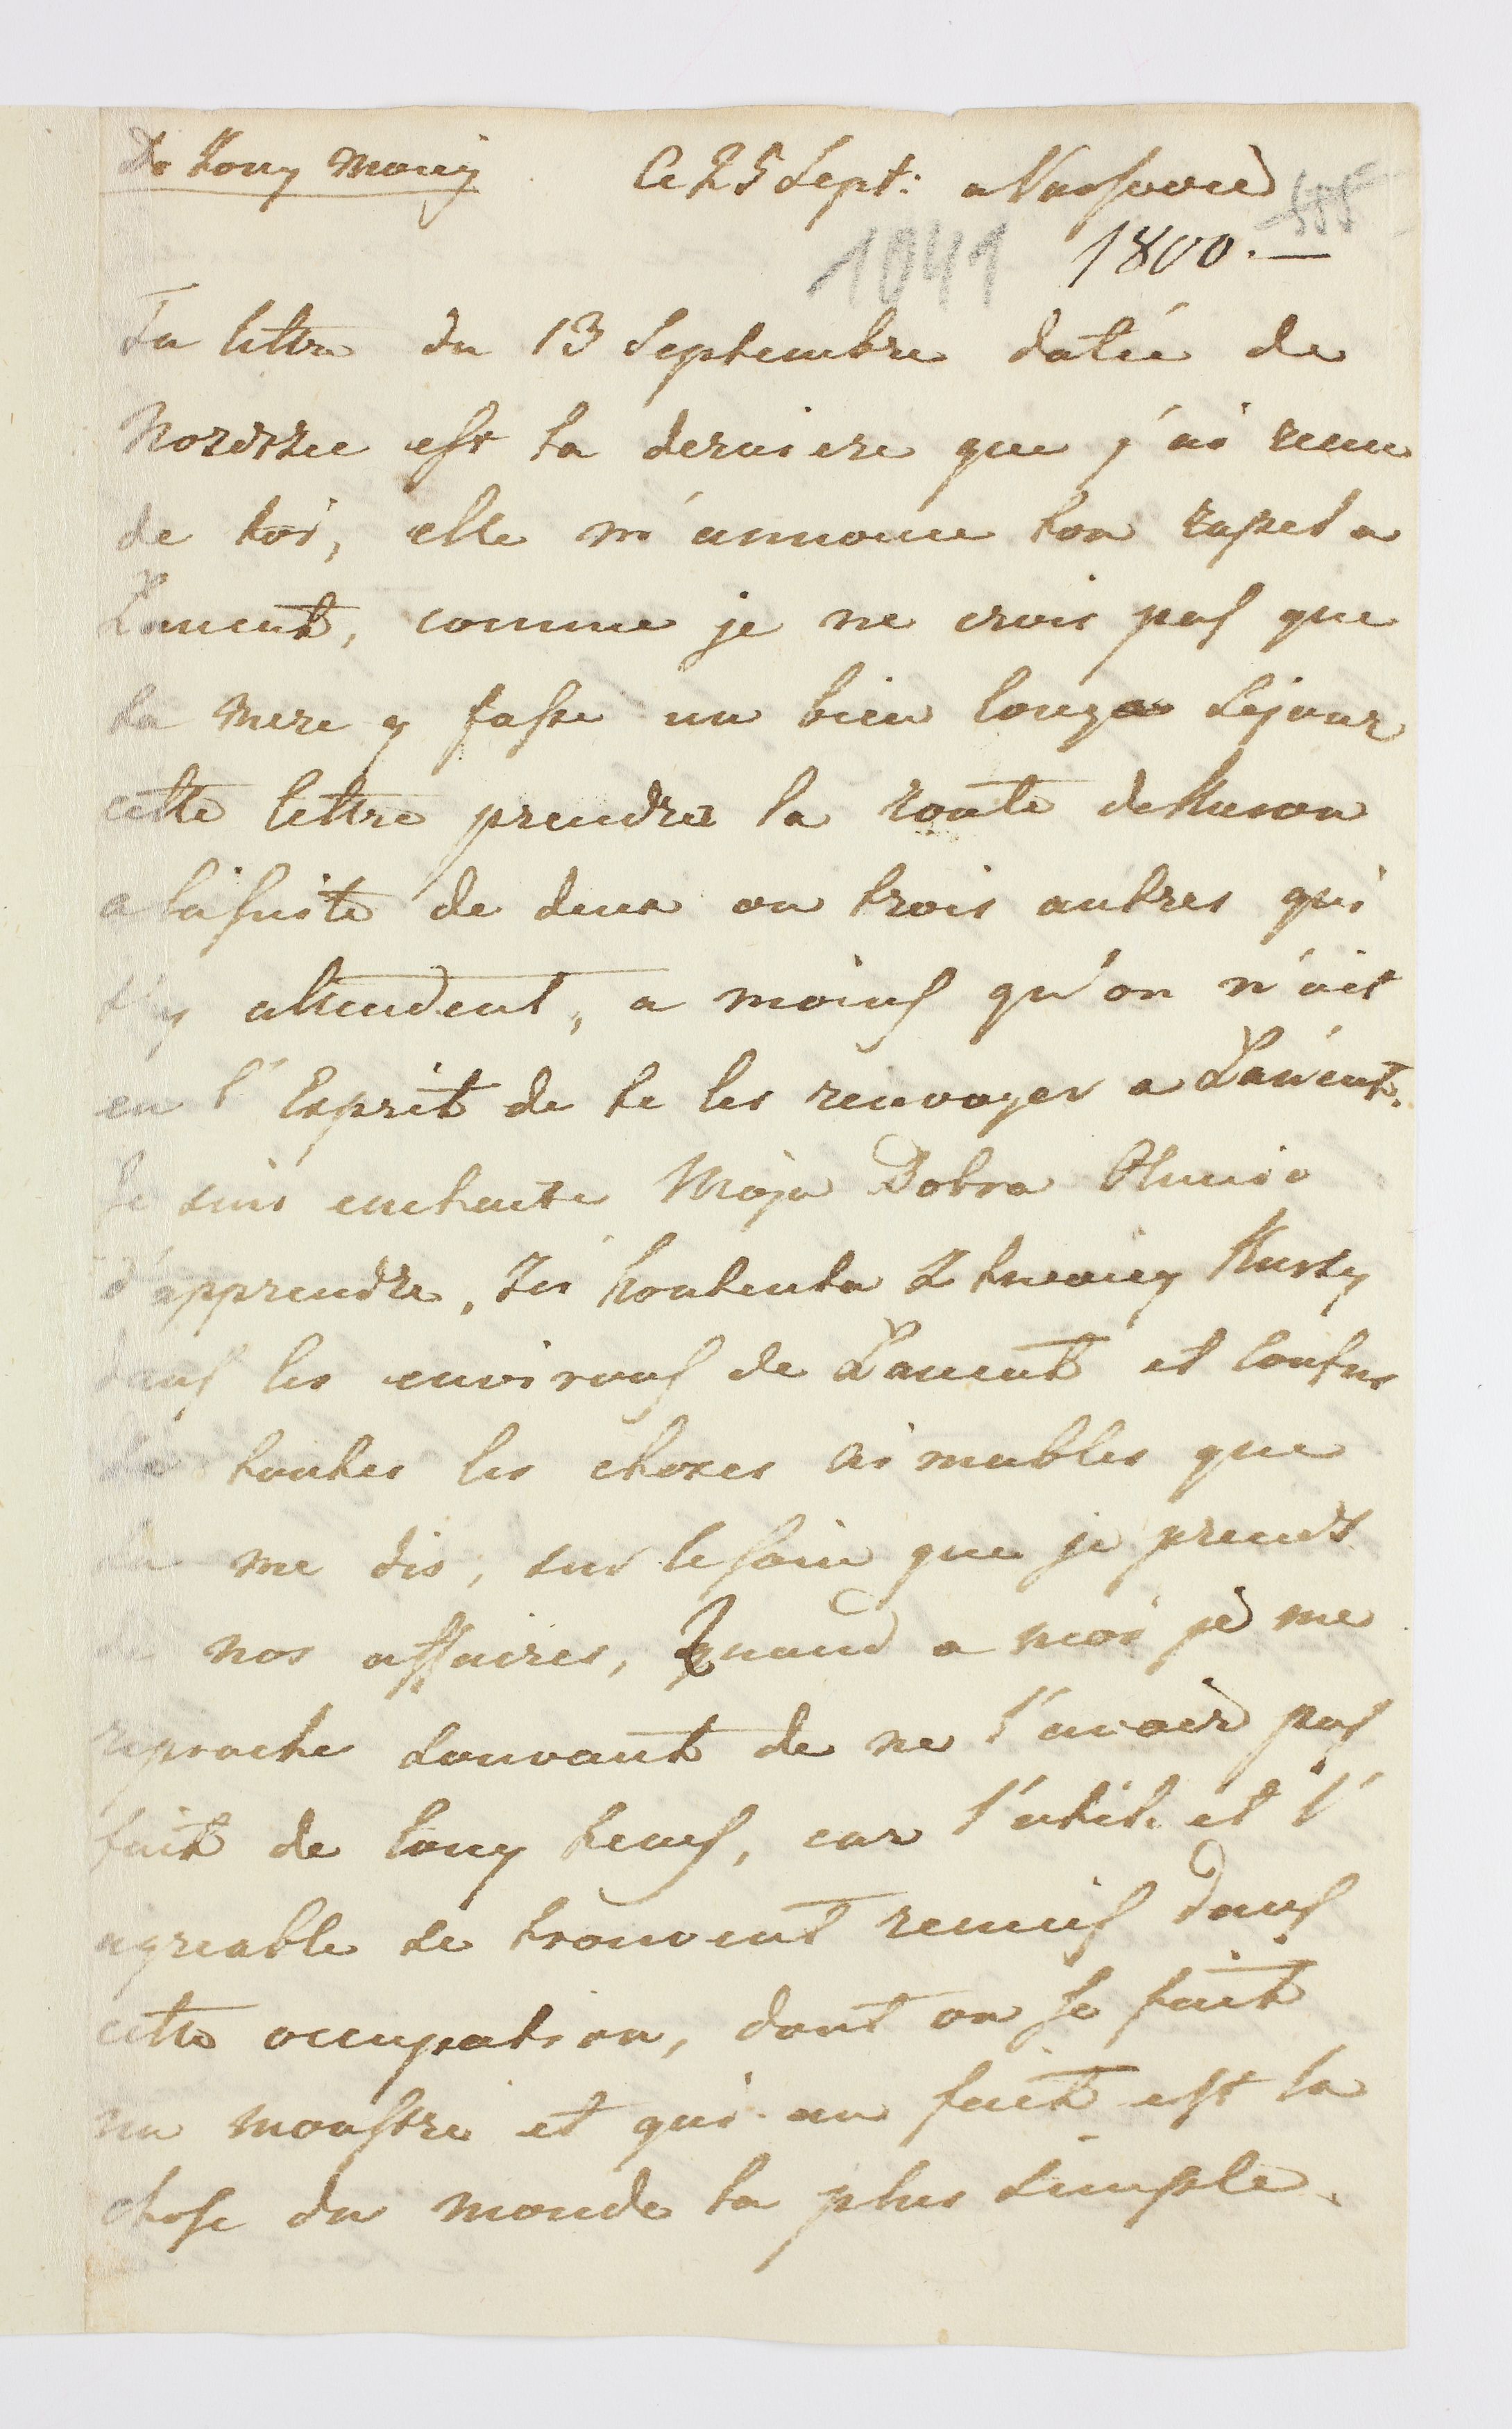 Do Żony Moiey Ce 25 Sept: a Varsovie
555
1041 1800.—
Ta lettre du 13 Septembre datée de
est ta derniere que j'ai recue
de toi, elle m'annonce ton rapel a
Łancut, comme je ne crois pas que
ta mere y fasse un bien long sejour
cette lettre prendra la route de
a la suite de deux ou trois autres qui
t'y attendent, a moins qu'on n'ait
eu l'Esprit de te les renvoyer a Łancut.
Je suis enchanté Moja Dobra Olunio
d'apprendre, Zes kontenta z
dans les environs de Łancut et confus
de toutes les choses aimables que
tu me dis, sur le soin que je prends
de nos affaires, Quand a moi je me
reproche souvant de ne l'avoir pas
fait de long tems, car l'utile et l'
agreable se trouvent reunis dans
cette occupation, dont on se fait
un monstre et qui au fait est la
chose du monde la plus simple.